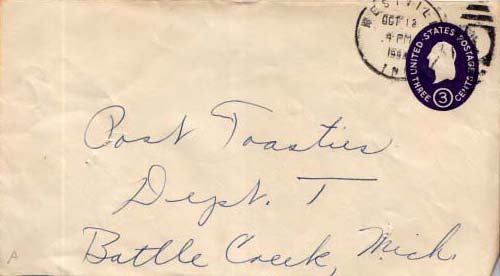 OCT 12
4 PM
UNITED STATES POSTAGE
3
THREE CENTS
Post Toasties
Dept. T
Battle Creek, Mich.
A